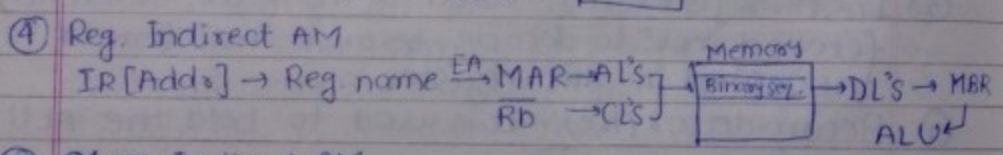 ④ Reg. Indirect AM
IR[Addr] → Reg. name —EA→ MAR → AL's
Memory
Binary seq.
→ DL'S → MBR
R̅D̅ → CL's
ALU